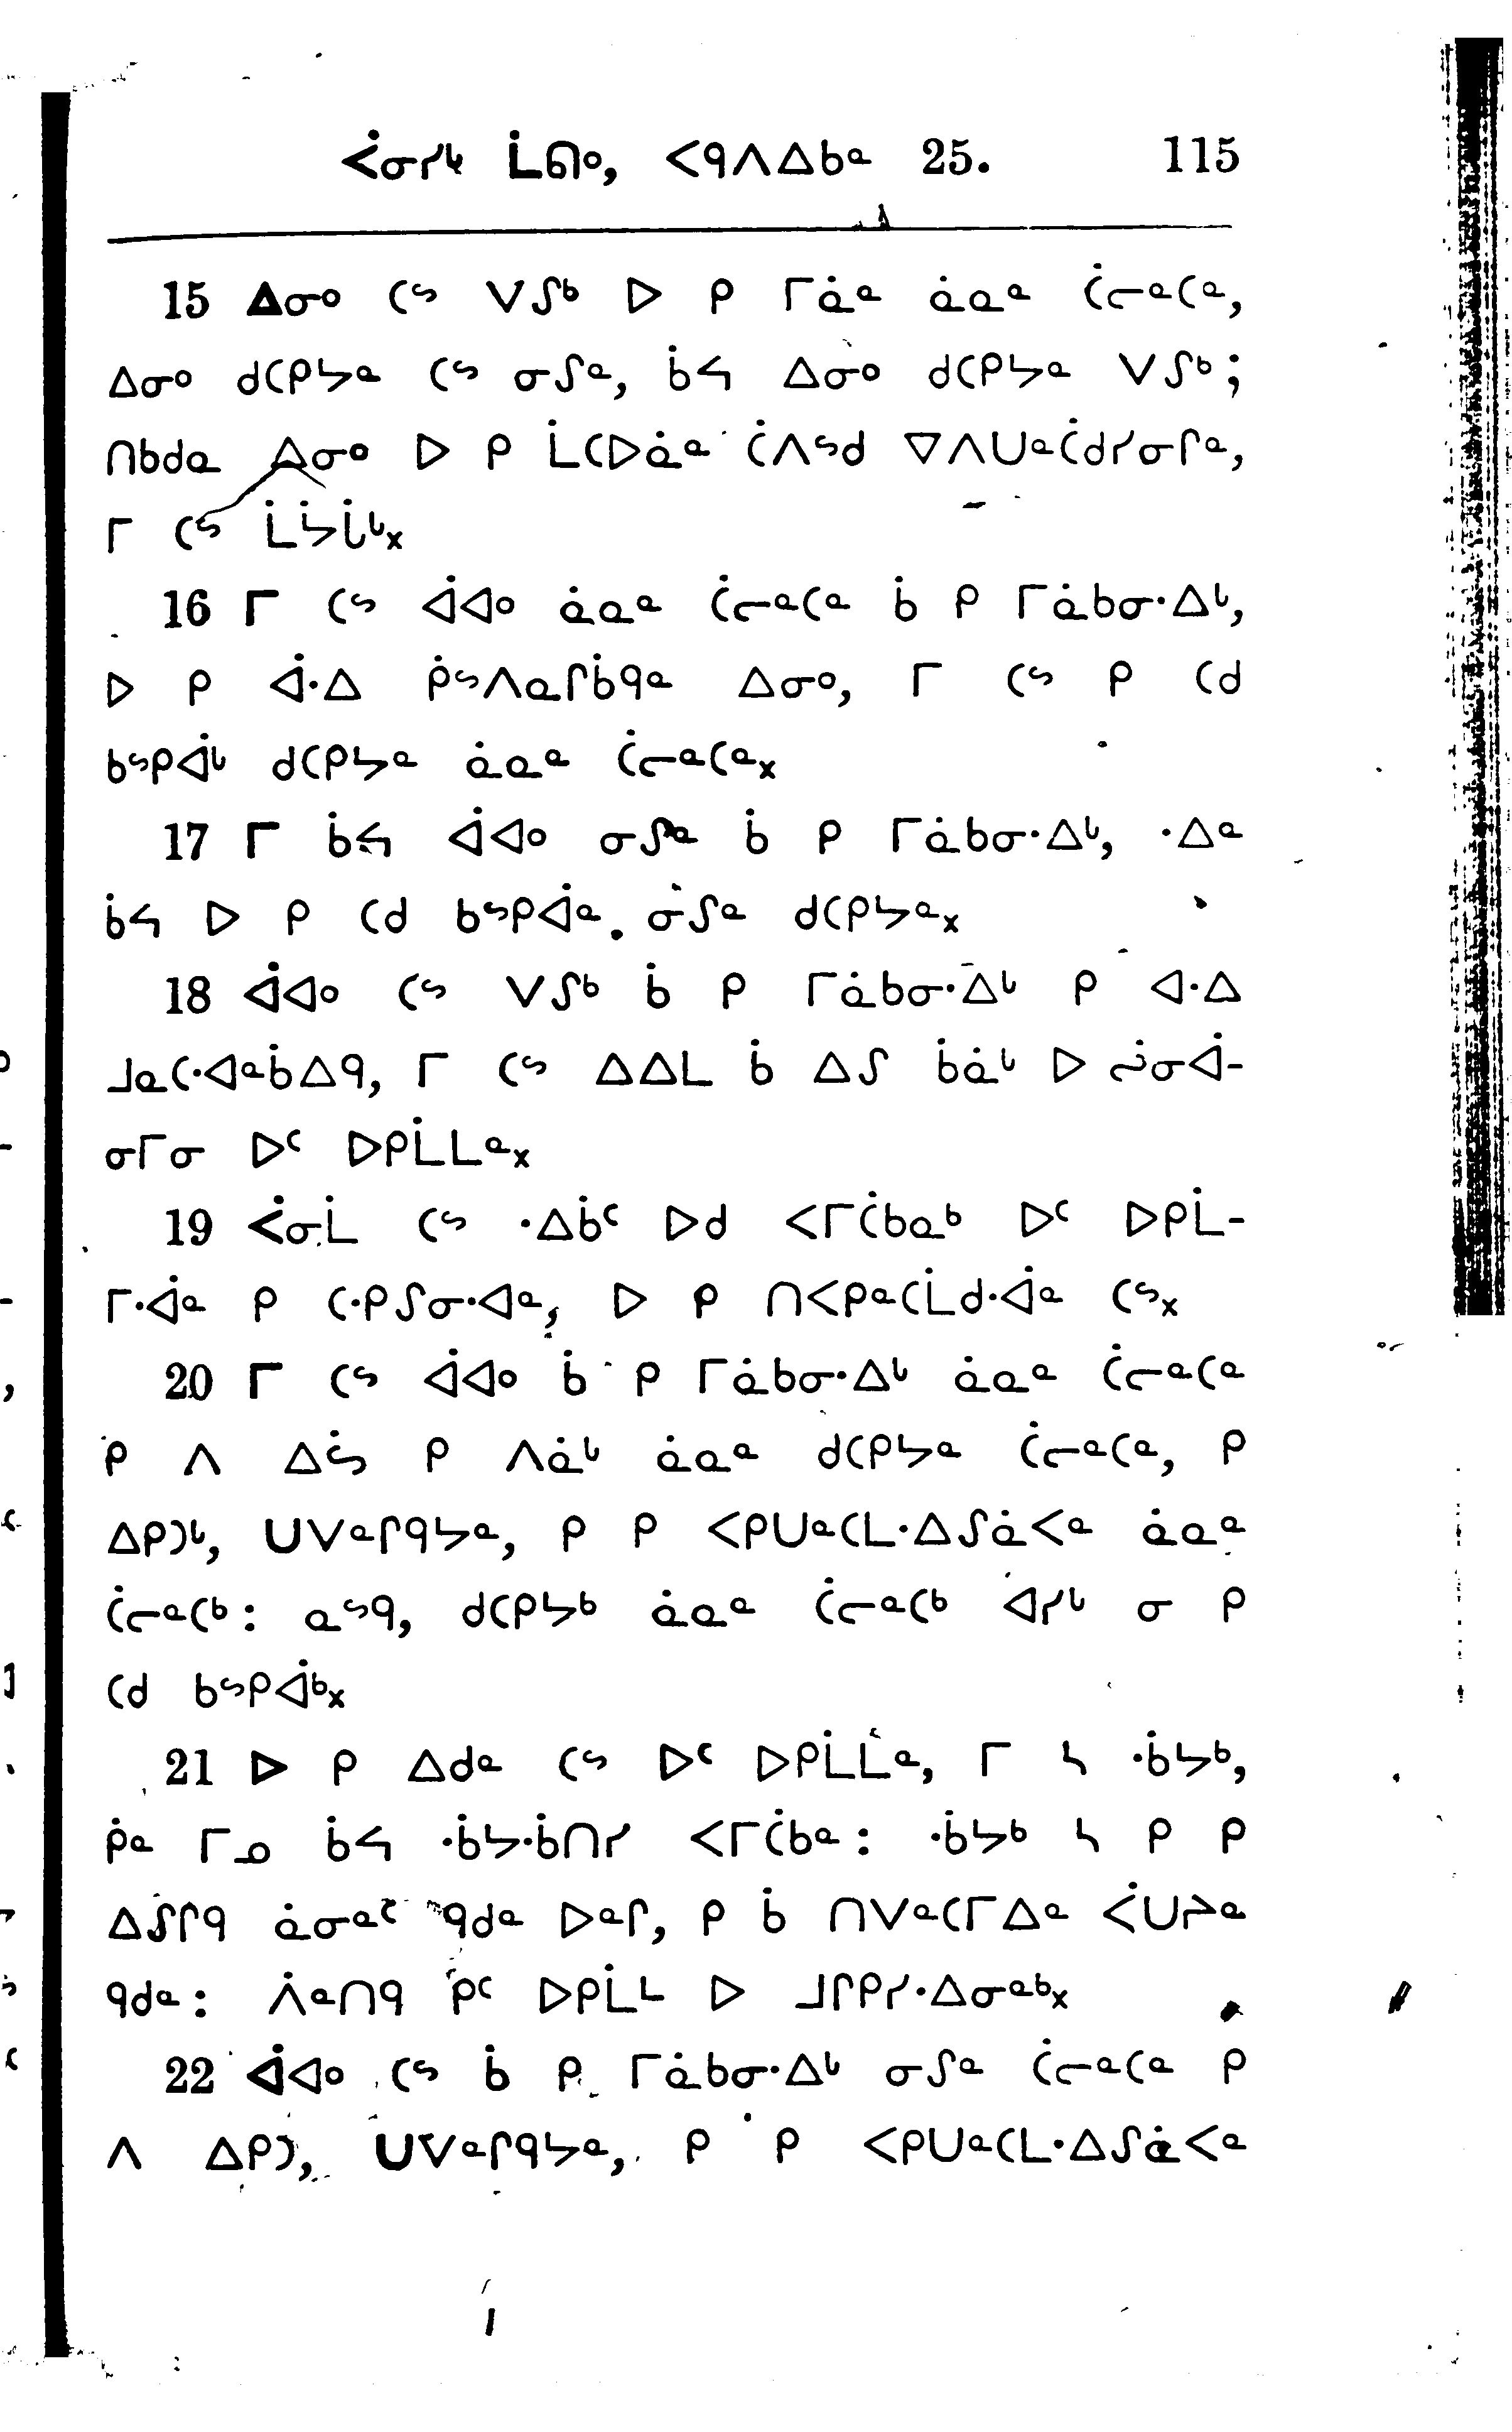 ᐹᓂᓯᔾ ᒫᖠᐤ, ᐸᑫᐱᐃᑲᓐ 25. 115
15 ᐃᓂᐤ ᑕᔥ ᐯᔑᒃ ᐅ ᑭ ᒥᓈᓐ ᓈᓇᓐ ᑖᓕᓐᑕᓐ,
ᐃᓂᐤ ᑯᑕᑭᔭᓐ ᑕᔥ ᓂᔑᓐ, ᑳᔦ ᐃᓂᐤ ᑯᑕᑭᔭᓐ ᐯᔑᒃ;
ᑎᑲᑯᓇ ᐃᓂᐤ ᐅ ᑭ ᒫᑕᐅᓈᓐ ᑖᐱᔥᑯ ᐁᐱᑌᓐᑖᑯᓯᓂᒋᓐ,
ᒥ ᑕᔥ ᒫᔮᒑᒡₓ
16 ᒥ ᑕᔥ ᐋᐊᐤ ᓈᓇᓐ ᑖᓕᓐᑕᓐ ᑳ ᑭ ᒥᓈᑲᓂᐧᐃᒡ,
ᐅ ᑭ ᐋᐧᐃ ᑮᔥᐱᓇᒋᑳᑫᓐ ᐃᓂᐤ, ᒥ ᑕᔥ ᑭ ᑕᑯ
ᑲᔥᑭᐋᒡ ᑯᑕᑭᔭᓐ ᓈᓇᓐ ᑖᓕᓐᑕᓐₓ
17 ᒥ ᑳᔦ ᐋᐊᐤ ᓂᔑᓐ ᑳ ᑭ ᒥᓈᑲᓂᐧᐃᒡ, ᐧᐃᓐ
ᑳᔦ ᐅ ᑭ ᑕᑯ ᑲᔥᑭᐋᓐ ᓃᔑᓐ ᑯᑕᑭᔭᓐₓ
18 ᐋᐊᐤ ᑕᔥ ᐯᔑᒃ ᑳ ᑭ ᒥᓈᑲᓂᐧᐃᒡ ᑭ ᐊᐧᐃ
ᒧᓇᑕᐧᐊᓐᑳᐃᑫ, ᒥ ᑕᔥ ᐃᐃᒪ ᑳ ᐃᔑ ᑳᓈᒡ ᐅ ᔔᓂᐋ-
ᓂᒥᓂ ᐅᑦ ᐅᑭᒫᒪᓐₓ
19 ᐹᓂᒫ ᑕᔥ ᐧᐃᑳᑦ ᐅᑯ ᐸᒥᑖᑲᓇᒃ ᐅᑦ ᐅᑭᒫ-
ᒥᐧᐋᓐ ᑭ ᑕᐧᑭᔑᓂᐧᐊᓐ, ᐅ ᑭ ᑎᐸᑭᓐᑕᒫᑯᐧᐋᓐ ᑕᔥₓ
20 ᒥ ᑕᔥ ᐋᐊᐤ ᑳ ᑭ ᒥᓈᑲᓂᐧᐃᒡ ᓈᓇᓐ ᑖᓕᓐᑕᓐ
ᑭ ᐱ ᐃᔖ ᑭ ᐱᓈᒡ ᓈᓇᓐ ᑯᑕᑭᔭᓐ ᑖᓕᓐᑕᓐ, ᑭ
ᐃᑭᑐᒡ, ᑌᐯᓐᒋᑫᔭᓐ, ᑭ ᑭ ᐸᑭᑌᓐᑕᒪᐧᐃᔑᓈᐸᓐ ᓈᓇᓐ
ᑖᓕᓐᑕᒃ: ᓇᔥᑫ, ᑯᑕᑭᔭᒃ ᓈᓇᓐ ᑖᓕᓐᑕᒃ ᐊᓯᒡ ᓂ ᑭ
ᑕᑯ ᑲᔥᑭᐋᒃₓ
21 ᐅ ᑭ ᐃᑯᓐ ᑕᔥ ᐅᑦ ᐅᑭᒫᒪᓐ, ᒥ ᓴ ᐧᑳᔭᒃ,
ᑮᓐ ᒥᓄ ᑳᔦ ᐧᑳᔭᐧᑳᑎᓯ ᐸᒥᑖᑲᓐ: ᐧᑳᔭᒃ ᓴ ᑭ ᑭ
ᐃᔑᒋᑫ ᓈᓂᓐᑦ ᑫᑯᓐ ᐅᓐᒋ, ᑭ ᑳ ᑎᐯᓐᑕᒥᐃᓐ ᐹᑌᔨᓐ
ᑫᑯᓐ: ᐲᓐᑎᑫ ᑭᑦ ᐅᑭᒫᒻ ᐅ ᒧᒋᑭᓯᐧᐃᓂᓐᒃₓ
22 ᐋᐊᐤ ᑕᔥ ᑳ ᑭ ᒥᓈᑲᓂᐧᐃᒡ ᓂᔑᓐ ᑖᓕᓐᑕᓐ ᑭ
ᐱ ᐃᑭᑐ, ᑌᐯᓐᒋᑫᔭᓐ, ᑭ ᑭ ᐸᑭᑌᓐᑕᒪᐧᐃᔑᓈᐸᓐ